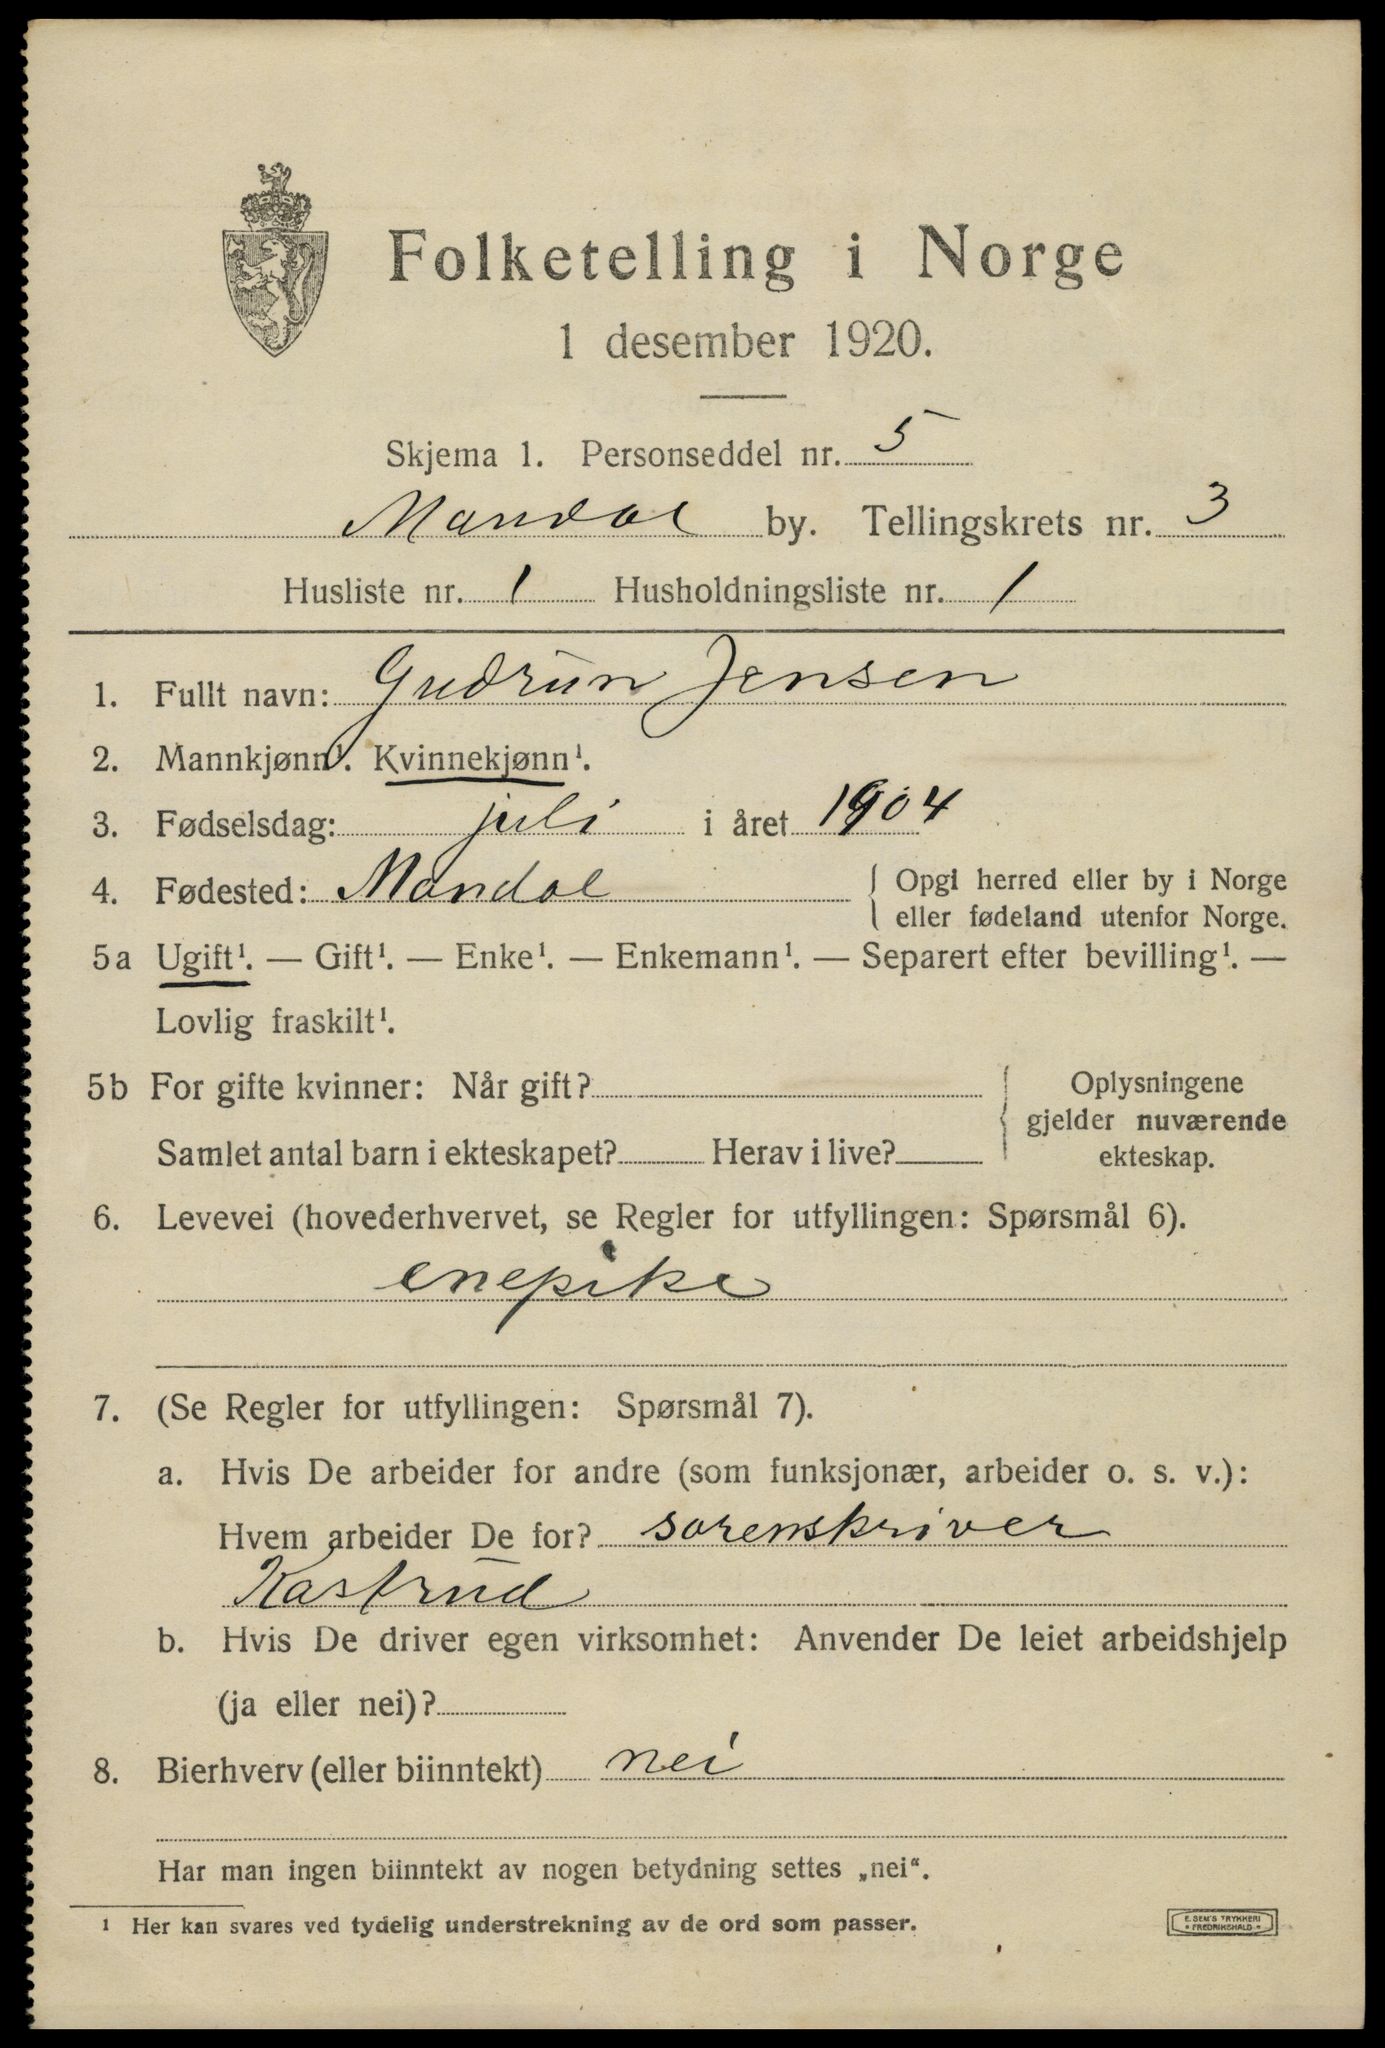 Folketelling i Norge
1 desember 1920.
Skjema 1. Personseddel nr. 5
Mandal by. Tellingskrets nr. 3
Husliste nr. 1 Husholdningsliste nr. 1
1. Fullt navn: Gudrun Jensen
2. Mannkjønn¹. Kvinnekjønn¹.
3. Fødselsdag: juli i året 1904
4. Fødested: Mandal
{ Opgi herred eller by i Norge
eller fødeland utenfor Norge.
5a Ugift¹. — Gift¹. — Enke¹. — Enkemann¹. — Separert efter bevilling¹. —
Lovlig fraskilt¹.
5b For gifte kvinner: Når gift?
Samlet antal barn i ekteskapet? Herav i live?
{ Oplysningene
gjelder nuværende
ekteskap.
6. Levevei (hovederhvervet, se Regler for utfyllingen: Spørsmål 6).
enepike
7. (Se Regler for utfyllingen: Spørsmål 7).
a. Hvis De arbeider for andre (som funksjonær, arbeider o. s. v.):
Hvem arbeider De for? sorenskriver
Kastrud
b. Hvis De driver egen virksomhet: Anvender De leiet arbeidshjelp
(ja eller nei)?
8. Bierhverv (eller biinntekt) nei
Har man ingen biinntekt av nogen betydning settes „nei“.
¹ Her kan svares ved tydelig understrekning av de ord som passer.
E. SEM'S TRYKKERI
• FREDRIKSHALD •